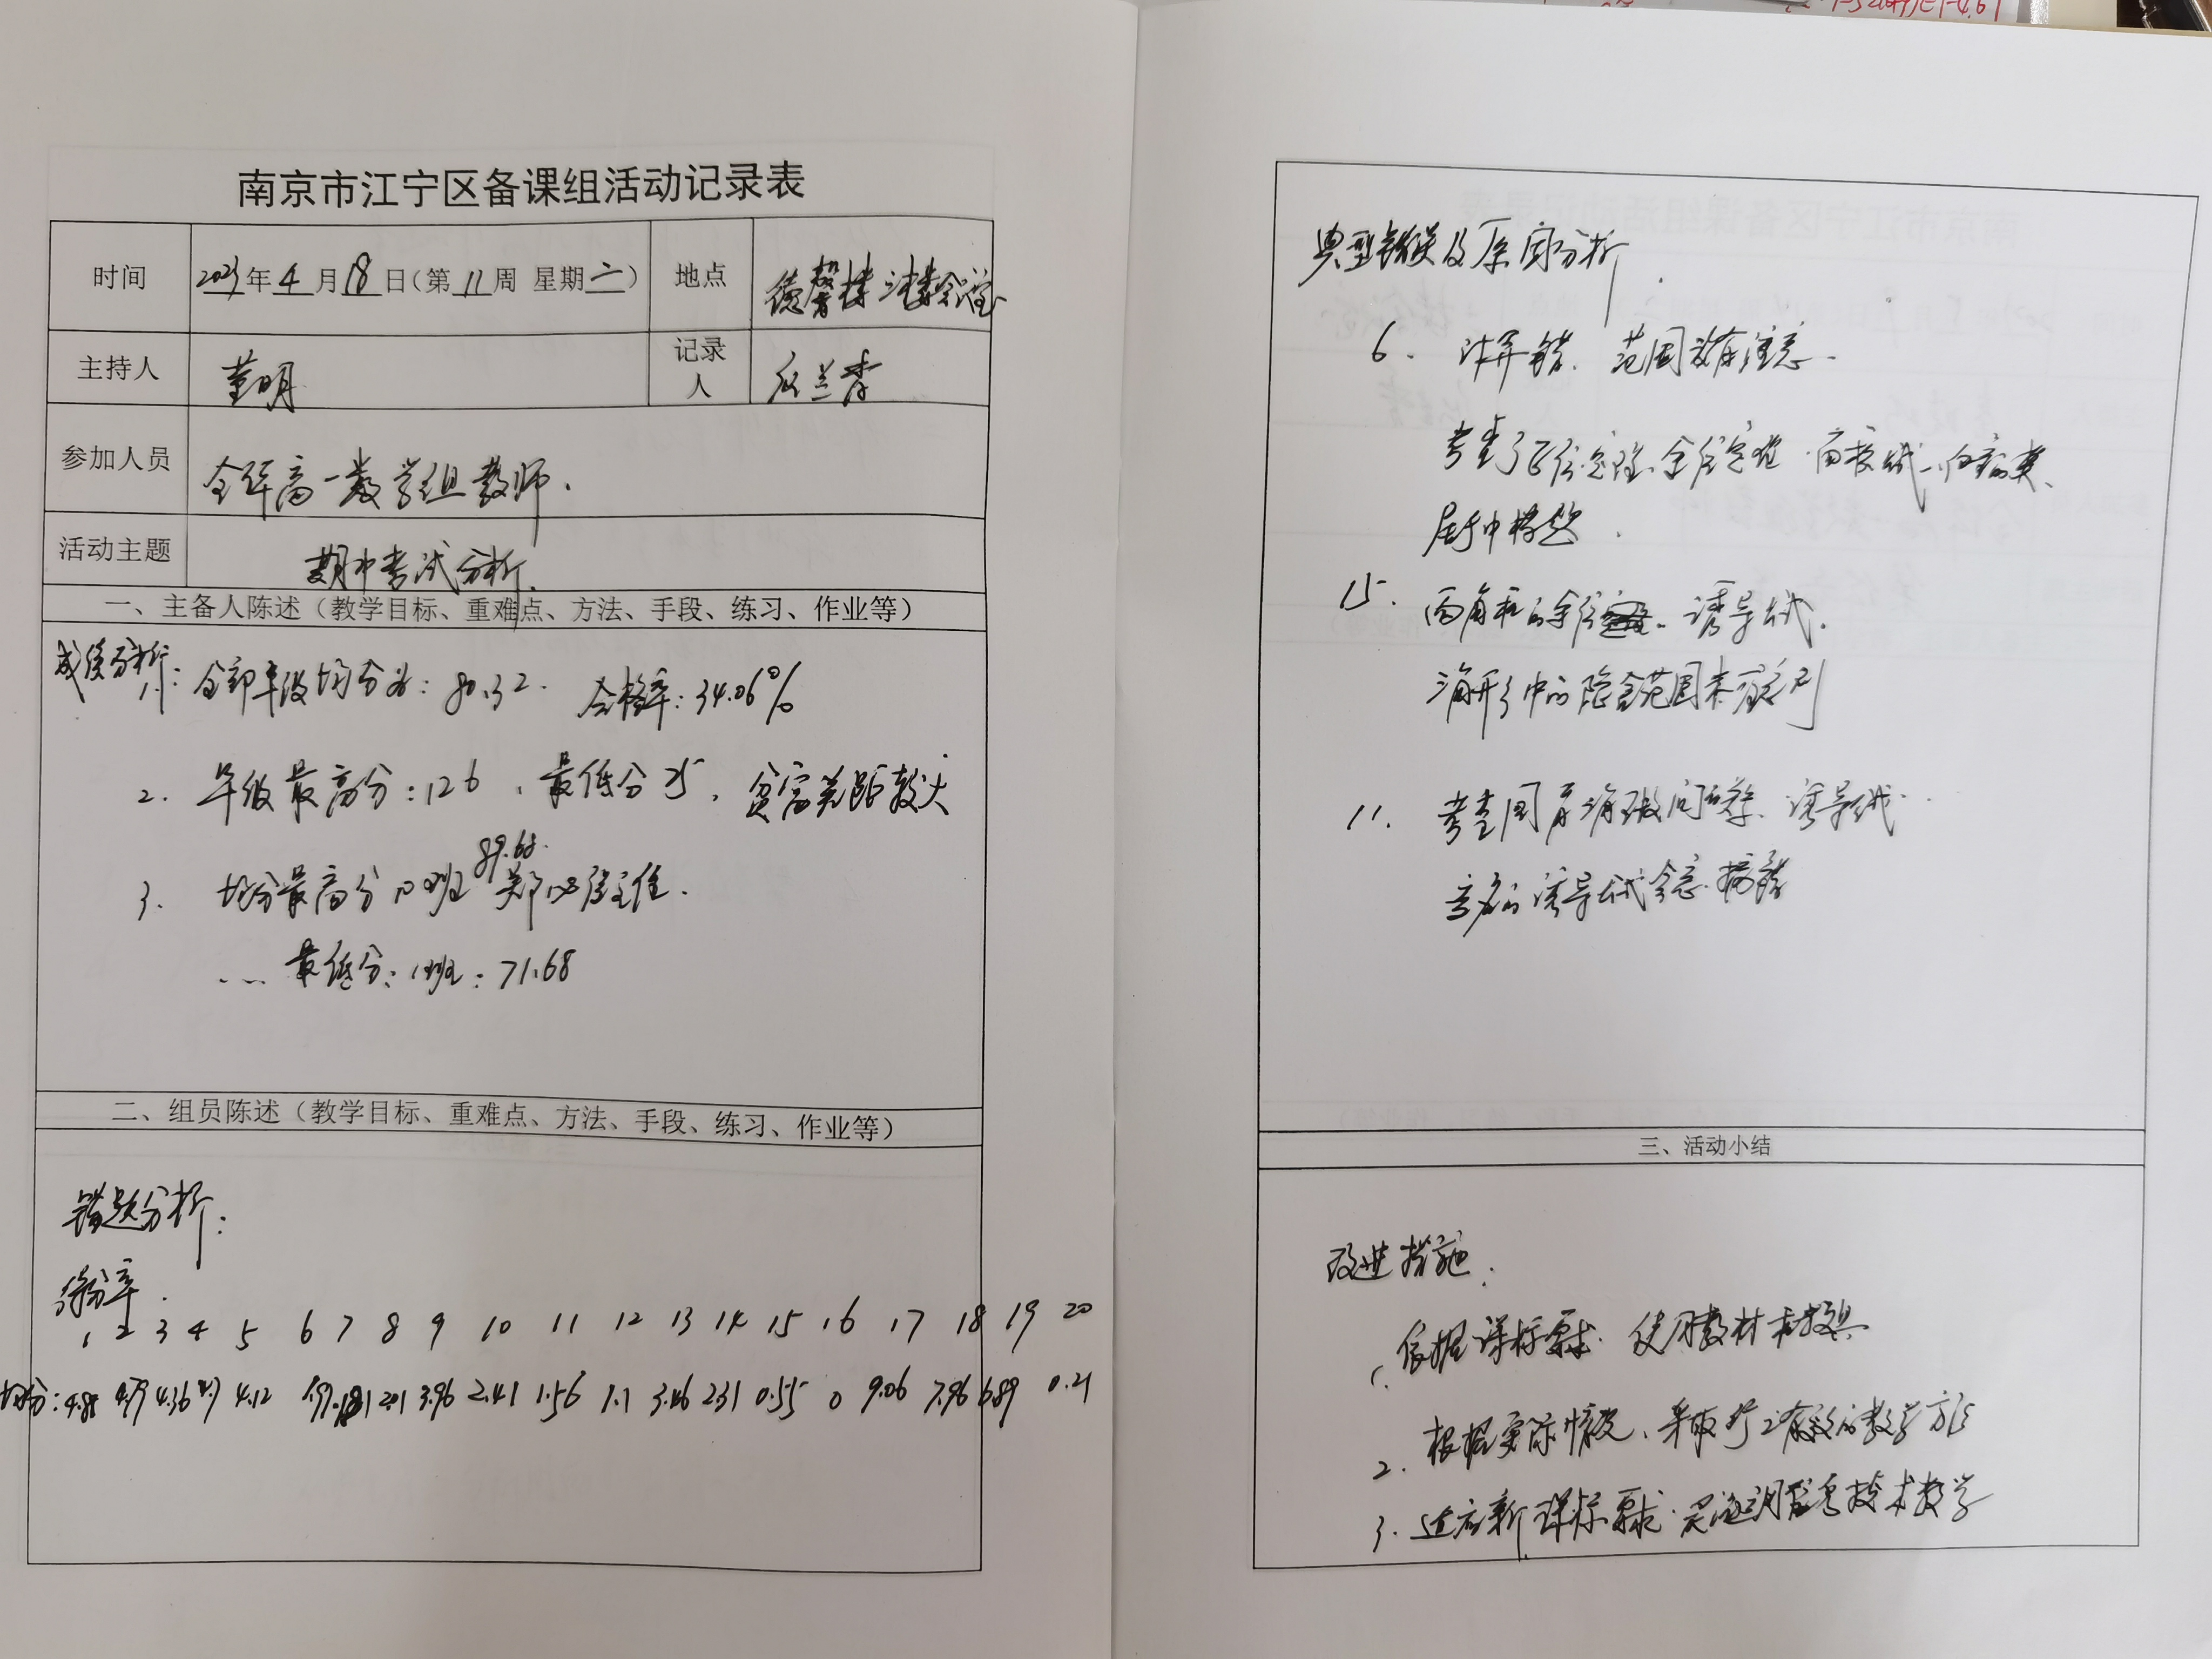 南京市江宁区备课组活动记录表
时间 2023年4月18日(第11周 星期二) 地点 德馨楼三楼会议室
主持人 董明 记录人 兰青
参加人员 全年高一数学组教师.
活动主题 期中考试分析.
一、主备人陈述（教学目标、重难点、方法、手段、练习、作业等）
成绩分析:
1. 全部年级均分为: 80.32. 合格率: 34.06%
2. 年级最高分: 126, 最低分25, 贫富差距较大
89.68.
3. 均分最高分10班 郑 主任.
... 最低分: 班: 71.68
二、组员陈述（教学目标、重难点、方法、手段、练习、作业等）
错题分析:
得分率.
1 2 3 4 5 6 7 8 9 10 11 12 13 14 15 16 17 18 19 20
均分: 4.88 4.79 4.36 4.12 2.01 3.96 2.41 1.56 1.1 3.46 2.31 0.55 0 9.06 7.96 6.89 0.21
典型错误及原因分析.
6. 计算错. 范围没有注意.
考查了正弦定理、余弦定理 面积公式、
属于中档题.
15. 两角和的余弦 诱导公式.
三角形中的隐含范围未考虑到
11. 考查同角三角函数间关系、诱导公式.
诱导公式
三、活动小结
改进措施:
1. 依据课标要求. 使用教材和教具
2. 根据实际情况、采取行之有效的教学方法
3. 适应新课标要求. 灵活运用信息技术教学